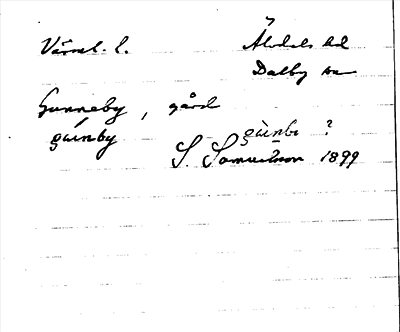 Värml. l. Älvdals hd
Dalby sn
Gunneby, gård
gùnby gùnbi ?
S. Samuelsson 1899